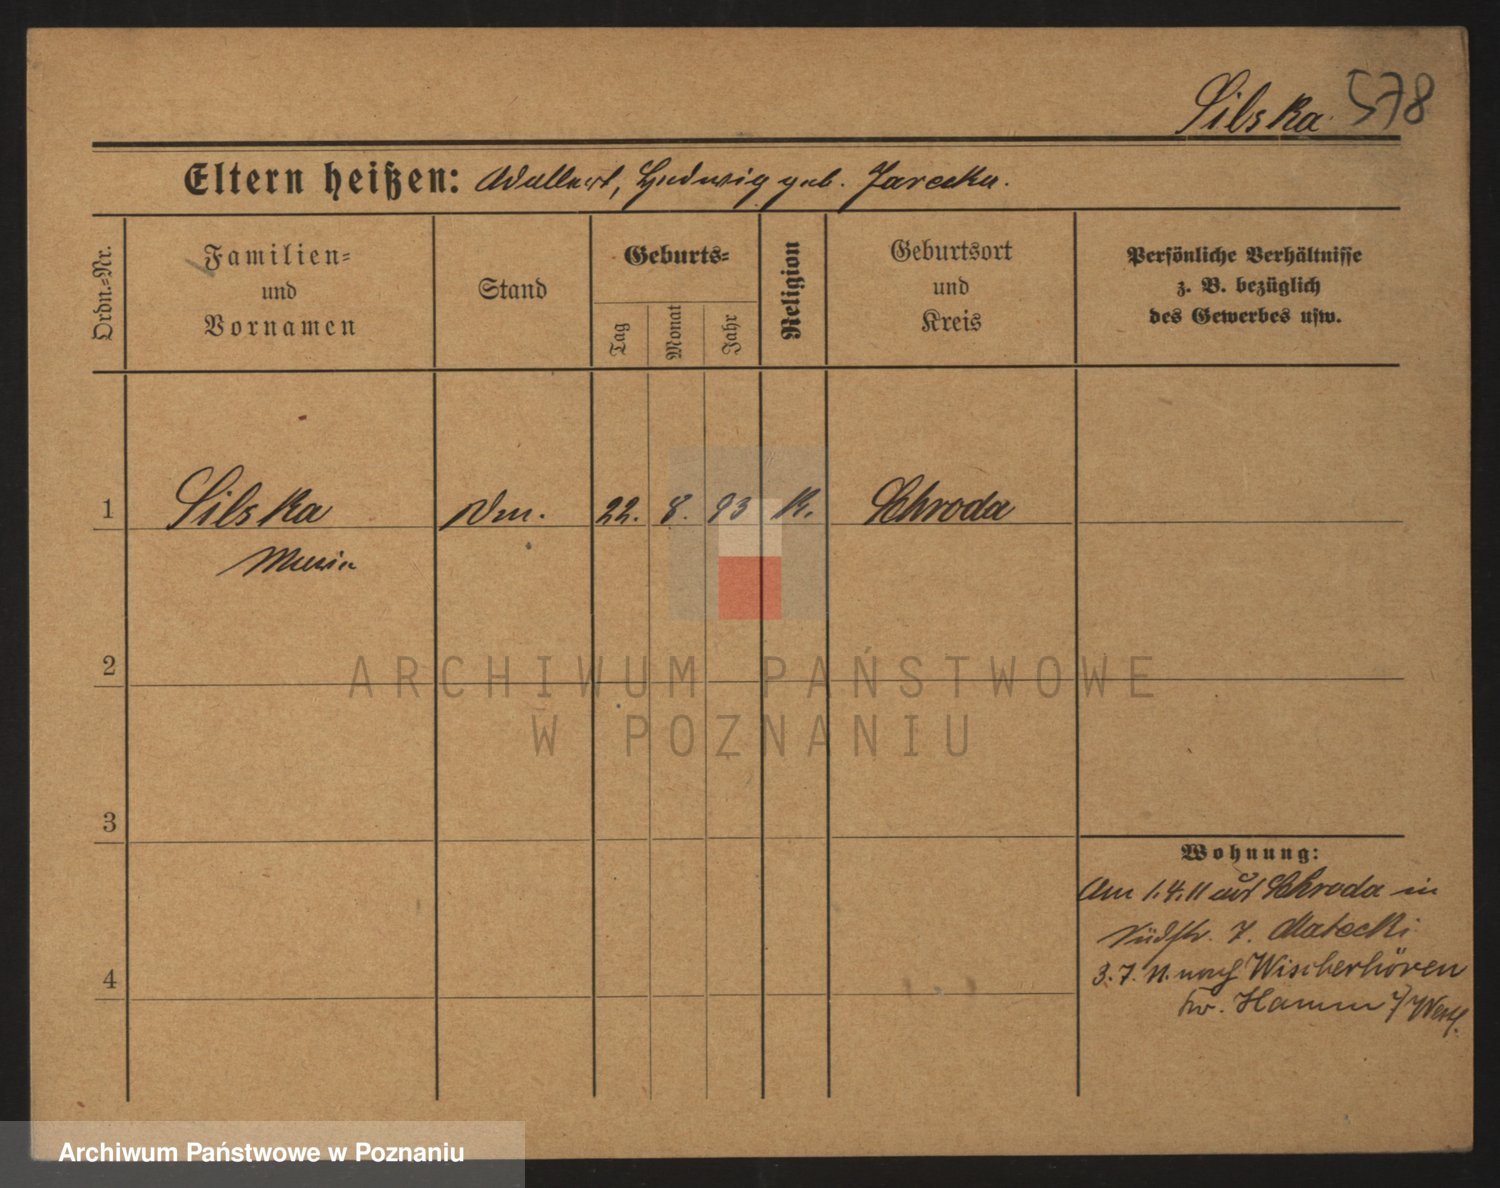 Silska 578
Eltern heißen: Adalbert, Hedwig geb. Jarecka.
Ordn.-Nr.
Familien-
und
Vornamen
Stand
Geburts-
Tag
Monat
Jahr
Religion
Geburtsort
und
Kreis
Persönliche Verhältnisse
z. B. bezüglich
des Gewerbes usw.
1 Silska 22. 8. 93 K. Schroda
Maria
2
3
4
Wohnung:
Am 1.4.11 aus Schroda in
Südstr. 7. Matecki
3.7.11. nach Wischerhöven
Kr. Hamm i/Westf.
ARCHIWUM PAŃSTWOWE
W POZNANIU
Archiwum Państwowe w Poznaniu